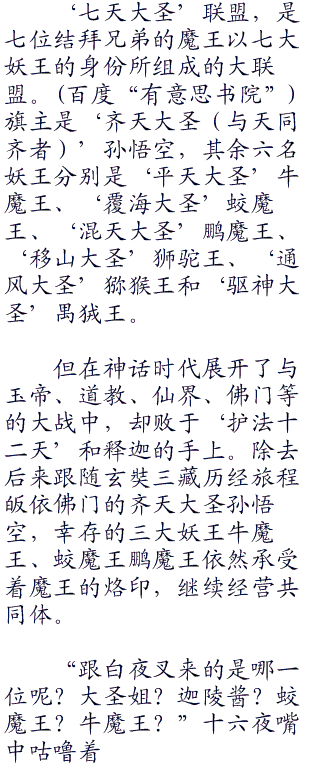 ‘七天大圣’联盟，是
七位结拜兄弟的魔王以七大
妖王的身份所组成的大联
盟。(百度“有意思书院”)
旗主是‘齐天大圣（与天同
齐者）’孙悟空，其余六名
妖王分别是‘平天大圣’牛
魔王、‘覆海大圣’蛟魔
王、‘混天大圣’鹏魔王、
‘移山大圣’狮驼王、‘通
风大圣’猕猴王和‘驱神大
圣’禺狨王。
但在神话时代展开了与
玉帝、道教、仙界、佛门等
的大战中，却败于‘护法十
二天’和释迦的手上。除去
后来跟随玄奘三藏历经旅程
皈依佛门的齐天大圣孙悟
空，幸存的三大妖王牛魔
王、蛟魔王鹏魔王依然承受
着魔王的烙印，继续经营共
同体。
“跟白夜叉来的是哪一
位呢？大圣姐？迦陵酱？蛟
魔王？牛魔王？”十六夜嘴
中咕噜着